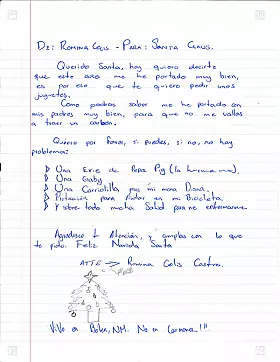 De: Romina Celis - Para: Santa Claus.
Querido Santa, hoy quiero decirte
que este año me he portado muy bien,
es por eso que te quiero pedir unos
juguetes.
Como podras saber me he portado
mis padres muy bien, para que no me vallas
a traer un carbon.
Quiero por favor, si puedes, si no, no hay
problema:
Una de Pepa Pig (la
Una Gaby
Una Carriolla mi Dora,
para mi Bicicleta,
Y sobre todo mucha Salud para no enfermarme
Agradezco tu Atención, y cumplas con lo que
te pido. Feliz Navidad Santa
ATTE Romina Celis Castro.
Vivo en NM. No en !!!